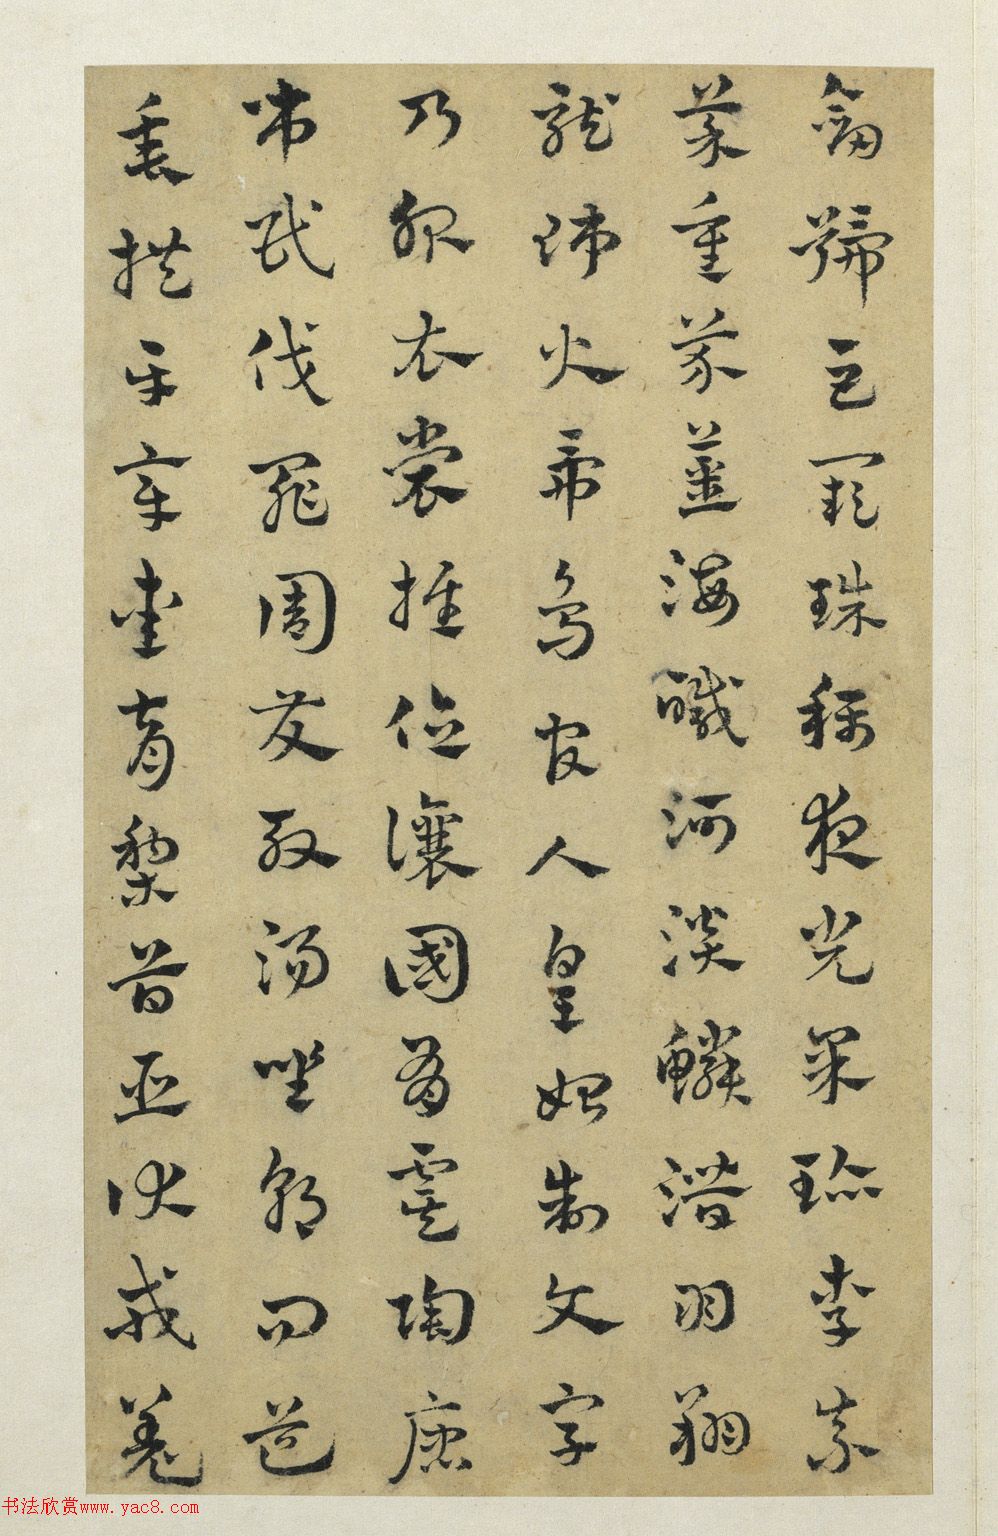 劍號巨闕珠稱夜光菓珎李柰
菜重芥薑海醎河淡鱗潛羽翔
龍師火帝鳥官人皇始制文字
乃服衣裳推位讓國有虞陶唐
弔民伐罪周發殷湯坐朝問道
垂拱平章愛育黎首臣伏戎羌
书法欣赏www.yac8.com